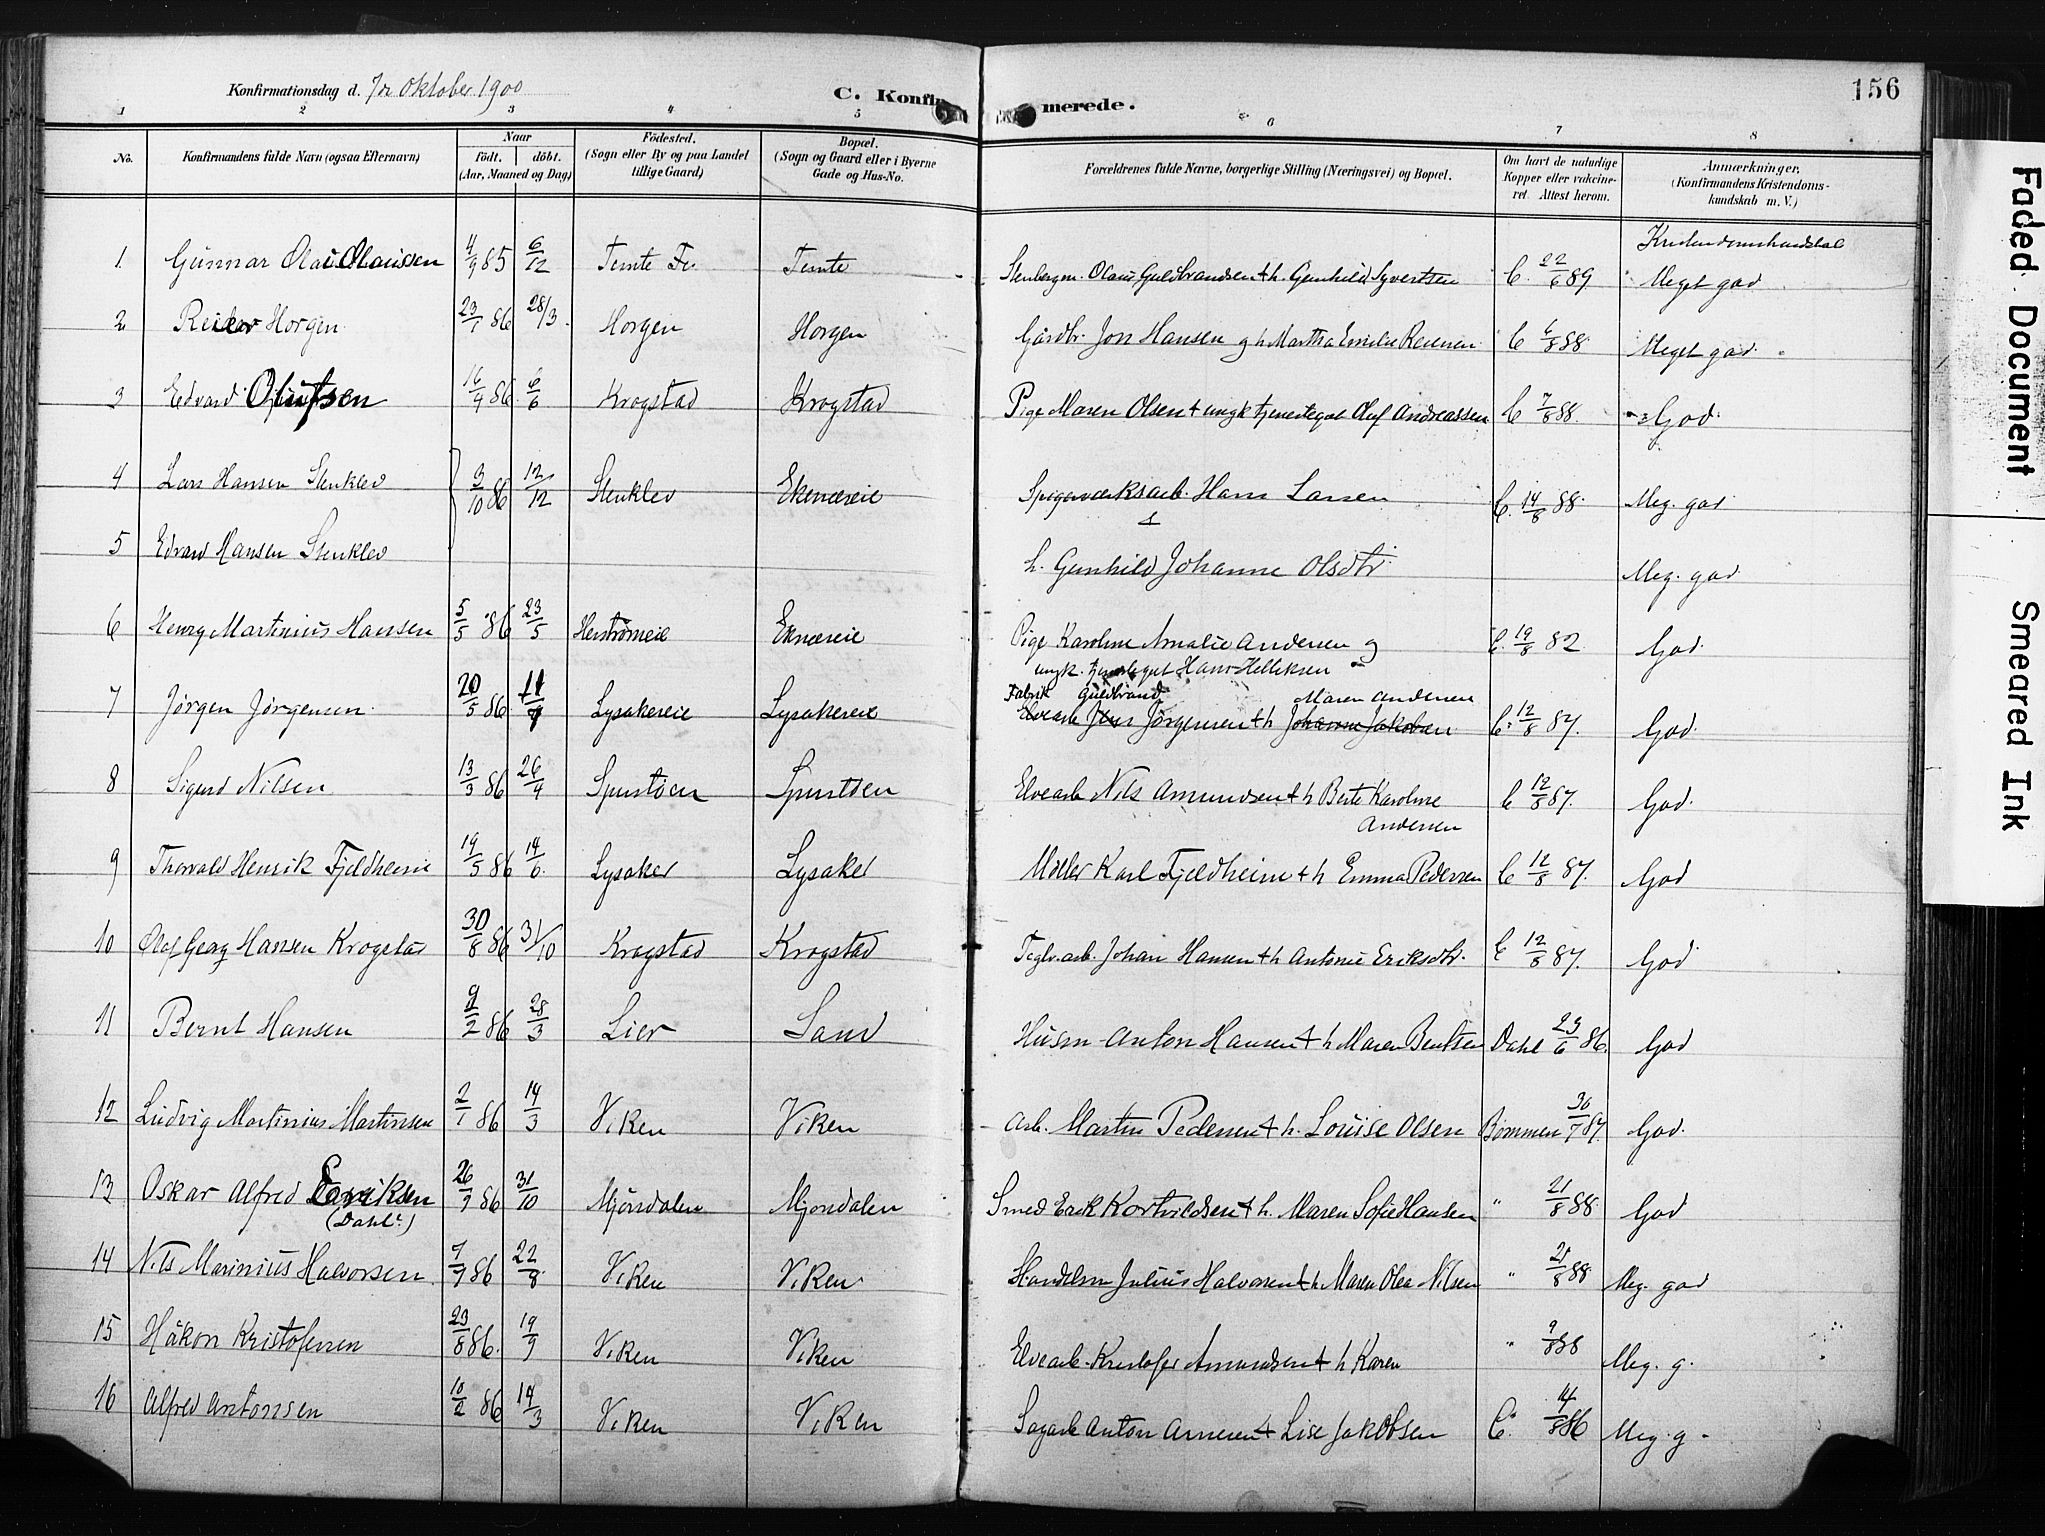 Konfirmationsdag d. 7de Oktober 1900
C. Konfirmerede.
156
1 2 3 4 5 6 7 8
No.
Konfirmandens fulde Navn (ogsaa Efternavn)
Naar
födt. döbt.
(Aar, Maaned og Dag)
Födested.
(Sogn eller By og paa Landet
tillige Gaard)
Bopæl.
(Sogn og Gaard eller i Byerne
Gade og Hus-No.
Forældrenes fulde Navne, borgerlige Stilling (Næringsvei) og Bopæl.
Om havt de naturlige
Kopper eller vakcine-
ret. Attest herom.
Anmærkninger.
(Konfirmandens Kristendoms-
kundskab m. V.)
Kristendomskundskab
1 Gunnar Olai Olaussen 4/9 85 6/12 Temte Temte Stenbergm. Olaus Guldbrandsen + h. Gunhild Syvertsen C. 22/6 89 Meget god
2 Reidar Horgen 23/1 86 28/3 Horgen Horgen Gårdbr. Jon Hansen og h Martha Emelie C 6/8 88 Meget god
3 Edvard Olufsen 16/4 86 6/6 Krogstad Krogstad Pige Maren Olsen + ungk tjenestegut Oluf Andreassen C 7/8 88 God
4 Lars Hansen Stenklev 3/10 86 12/12 Stenklev Ekenæseie Spigerværksarb. Hans Larsen C. 14/8 88 Meg. god
+
5 Edvard Hansen Stenklev h. Gunhild Johanne Olsdtr. Meg. god
6 Henry Martinius Hansen 5/5 86 23/5 Herstrømeie Eknæseie Pige Karoline Amalie Andersen og C. 19/8 82 God.
ungk. tjenestegut Hans Helliksen
Fabrik Guldbrand Maren Andersen
7 Jørgen Jørgensen 20/5 86 Lysakereie Lysakereie Elvearb Jens Jörgensen + h Johanne Jakobsen C. 12/8 87. God.
8 Sigurd Nilsen 13/3 86 26/4 Spentöen Spentöen Elvearb Nils Amundsen + h Berte Karoline C 12/8 87. God.
Andersen
9 Thorvald Henrik Fjeldheim 19/5 86 14/6 Lysaker Lysaker Møller Karl Fjeldheim + h Emma Pedersen C 12/8 87. God
10 Olaf Georg Hansen Krogstad 30/8 86 31/10 Krogstad Krogstad Teglv.arb. Johan Hansen + h Antonie Eriksdtr. C 12/8 87. God
11 Bernt Hansen 9/2 86 28/3 Lier Sand Husm Anton Hansen + h Maren Bentsen Dahl 23/6 86. God
12 Ludvig Martinius Martinsen 2/1 86 14/3 Viken Viken Arb. Martin Pedersen + h. Louise Olsen Bommen 30/7 87. God.
13 Oskar Alfred Eriksen 26/9 86 31/10 Mjöndalen Mjöndalen Smed Erik Kortvildsen + h. Maren Sofie Hansen " 21/8 88. God
(Dahl)
14 Nils Marinius Halvorsen 7/7 86 22/8 Viken Viken Handelsm Julius Halvorsen + h Maren Olea Nilsen " 21/8 88 Meg. god
15 Håkon Kristofersen 23/8 86. 19/9 Viken Viken Elvearb. Kristofer Amundsen + h Karen " 9/8 88 Meg. g.
16 Alfred Antonsen 10/2 86 14/3 Viken Viken Sagarb Anton Arnesen + Lise Jakobsen C. 4/8 86 Meg. g.
Faded Document
Smeared Ink